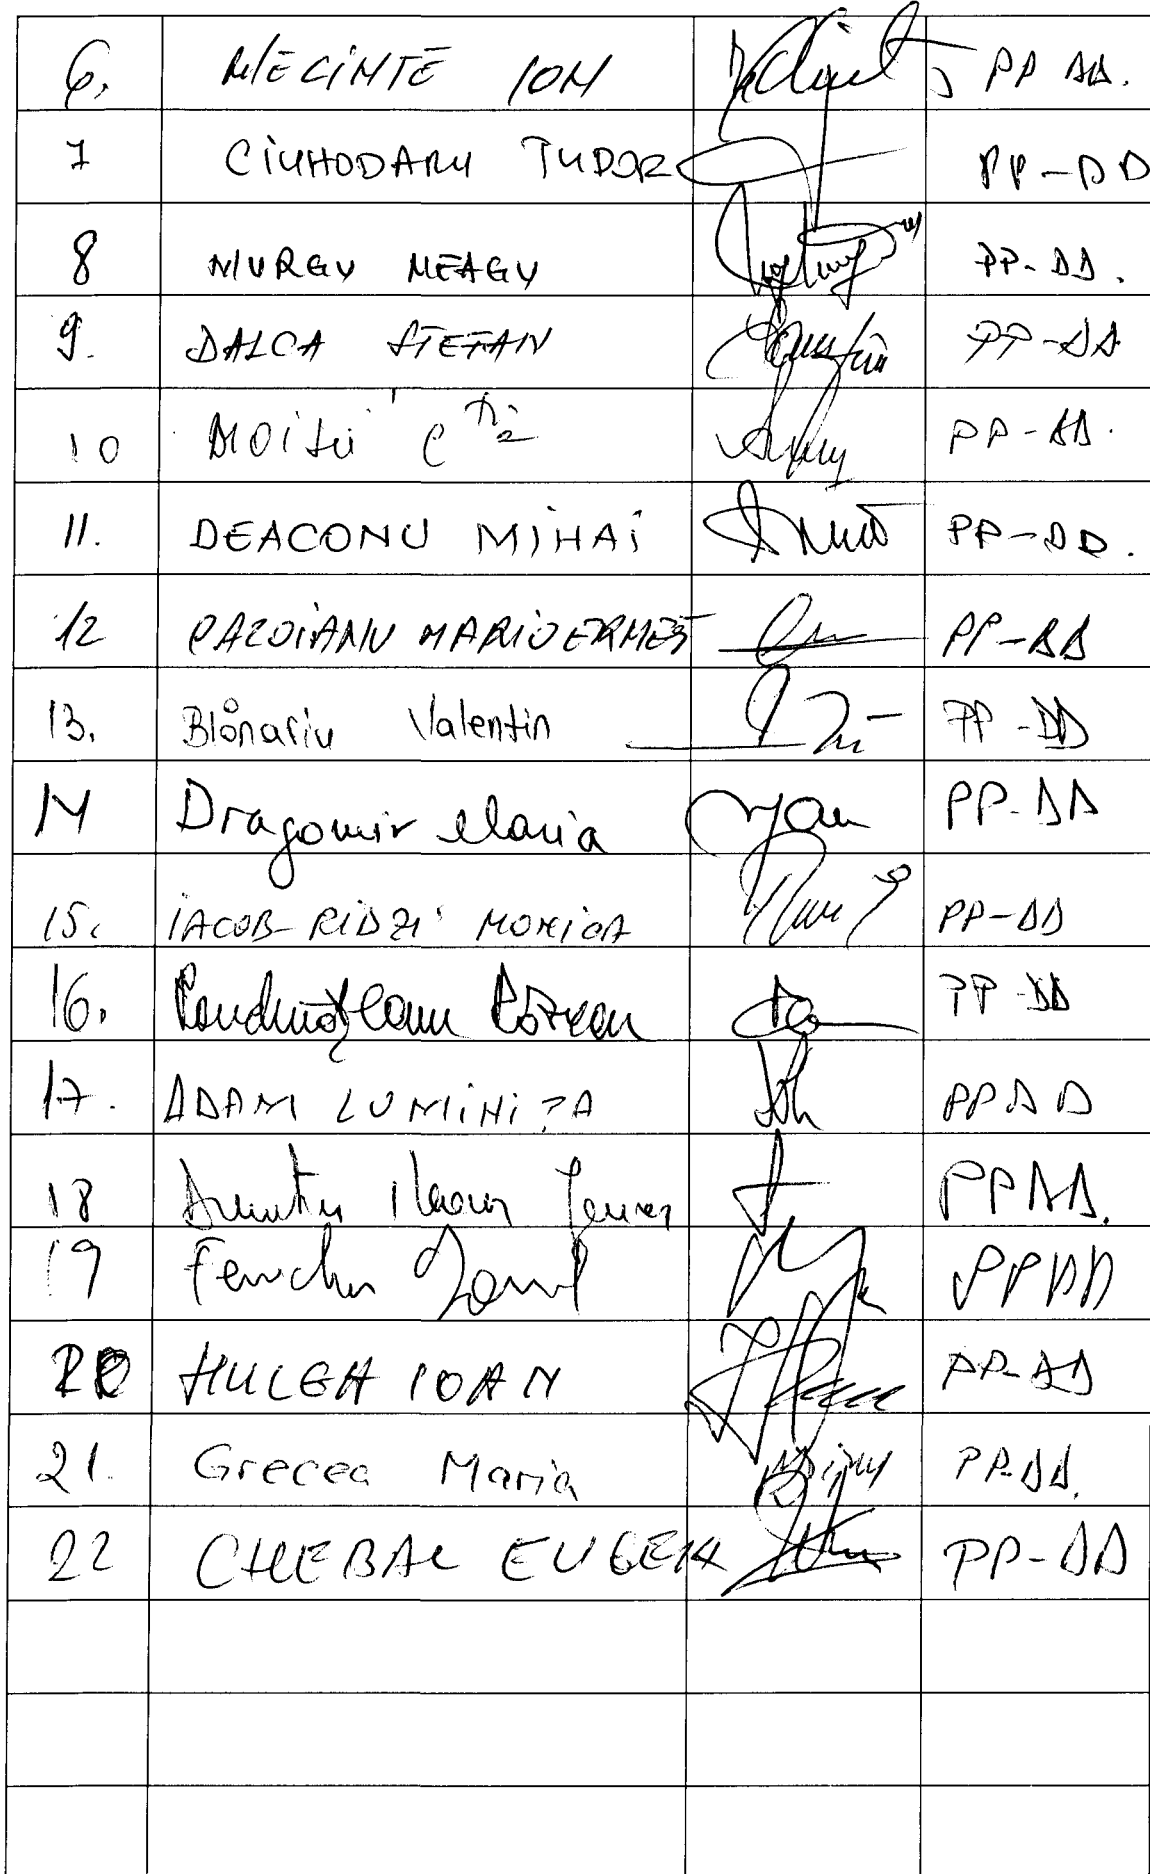 6. MECINTE ION PP DD.
7 CIUHODARU TUDOR PP-DD
8 MURGU NEAGU PP-DD.
9. DALCA STEFAN PP-DD
10 MOISII C-TIN PP-DD.
11. DEACONU MIHAI PP-DD.
12 CAZOIANU MARIO ERMES PP-DD
13. Blănariu Valentin PP-DD
14 Dragomir Maria PP-DD
15. IACOB-RIDZI MONICA PP-DD
16. PP-DD
17. ADAM LUMINIȚA PPDD
18 PPDD.
19 Fenechiu PPDD
20 HULEA IOAN PP-DD
21. Grecea Maria PP-DD.
22 CHEBAC EUGEN PP-DD